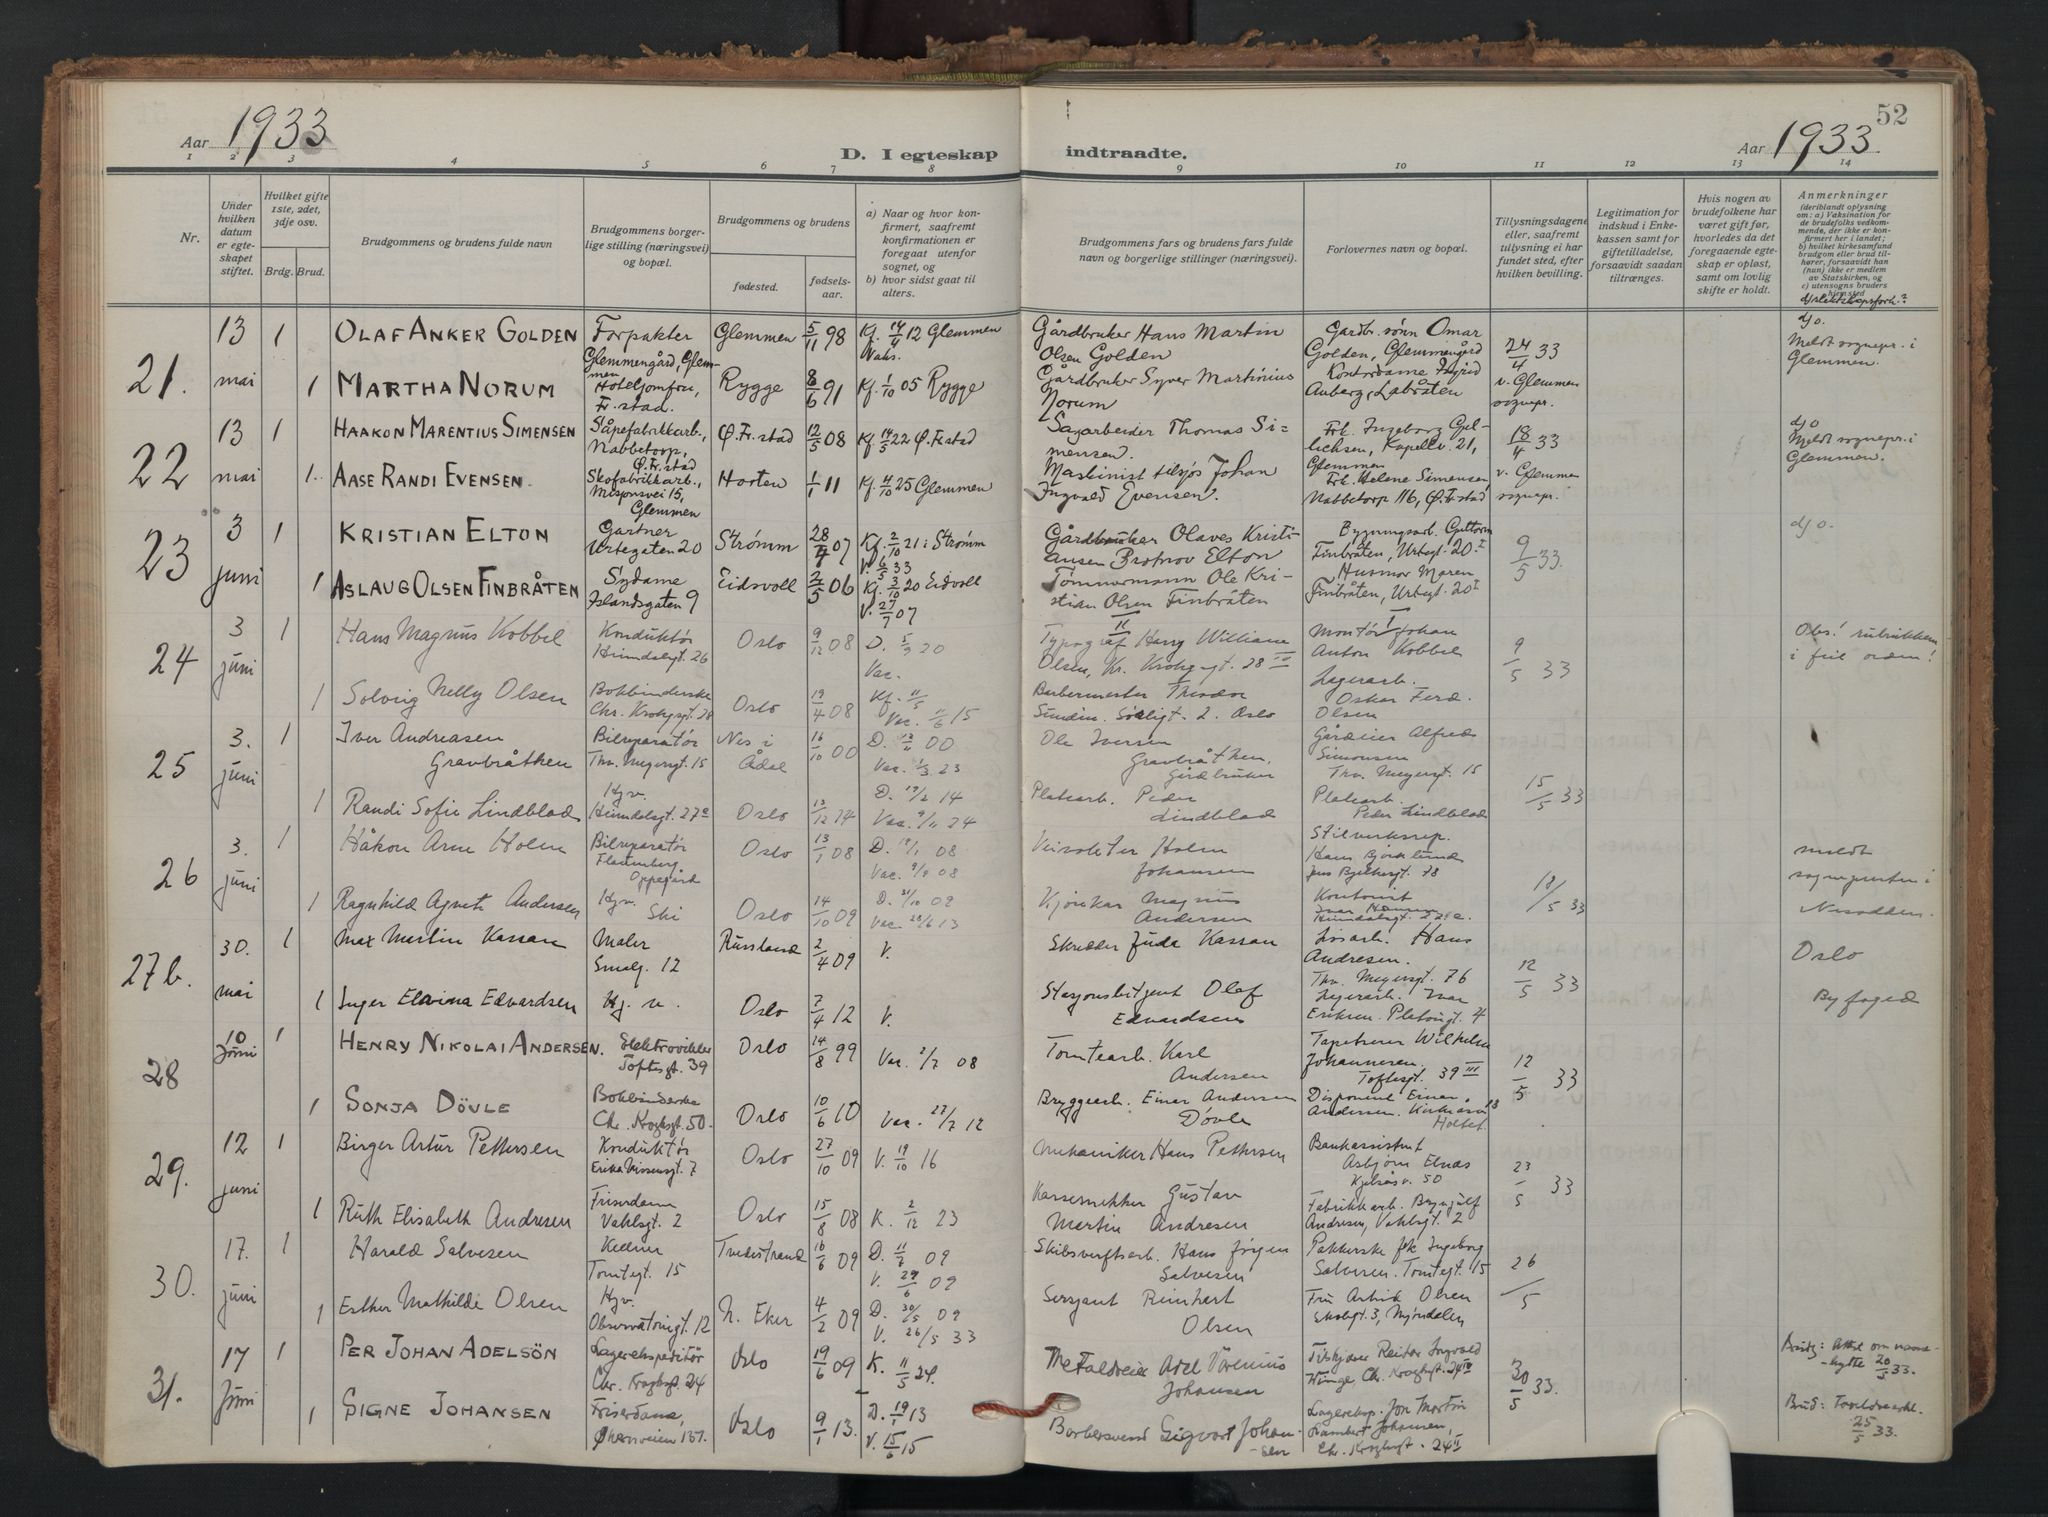 52
Aar 1933
D. I egteskap indtraadte.
Aar 1933
1 2 3 4 5 6 7 8 9 10 11 12 13 14
Nr.
Under hvilken datum er egteskapet stiftet.
Hvilket gifte 1ste, 2det, 3dje osv.
Brdg. Brud.
Brudgommens og brudens fulde navn
Brudgommens borgerlige stilling (næringsvei) og bopæl.
Brudgommens og brudens
fødested. fødselsaar.
a) Naar og hvor konfirmert, saafremt konfirmationen er foregaat utenfor sognet, og
b) hvor sidst gaat til alters.
Brudgommens fars og brudens fars fulde navn og borgerlige stillinger (næringsvei).
Forlovernes navn og bopæl.
Tillysningsdagene eller, saafremt tillysning ei har fundet sted, efter hvilken bevilling.
Legitimation for indskud i Enkekassen samt for giftetilladelse, forsaavidt saadan tiltrænges.
Hvis nogen av brudefolkene har været gift før, hvorledes da det foregaaende egteskap er opløst, samt om lovlig skifte er holdt.
Anmerkninger
(deriblandt oplysning om: a) Vaksination for de brudefolks vedkommende, der ikke er konfirmert her i landet; b) hvilket kirkesamfund brudgom eller brud tilhører, forsaavidt han (hun) ikke er medlem av Statskirken, og c) utensogns bruders hjemsted
d) slektskapsforh.?
21. 13 mai 1 OLAF ANKER GOLDEN Forpakter Glemmengård, Glemmen Glemmen 5/11 98 Kf. 14/4 12 Glemmen Vaks. Gårdbruker Hans Martin Olsen Golden Gardbr. sønn Omar Golden, Glemmengård 24/4 33 d) o. Meldt sognepr. i Glemmen.
1 MARTHA NORUM Hoteljomfru, Fr.stad. Rygge 8/6 91 Kf. 1/10 05 Rygge Gårdbruker Syver Martinius Norum Kontordame Ingrid Labråten v. Glemmen sognepr.
22 13 mai 1 HAAKON MARENTIUS SIMENSEN Såpefabrikkarb., Nabbetorp, Ø.Fr.stad Ø.Fr.stad 12/5 08 Kf. 14/5 22 Ø.Fr.stad Sagarbeider Thomas Simensen. Frk. Ingeborg Gellichsen, Kapellv. 21, Glemmen 18/4 33 d) o Meldt sognepr. i Glemmen.
1. AASE RANDI EVENSEN Skofabrikkarb., Misjonsvei 15, Glemmen Horten 1/1 11 Kf. 4/10 25 Glemmen Maskinist tilsjøs Johan Ingvald Evensen. Frk. Helene Simensen, Nabbetorp 116, Ø.Fr.stad v. Glemmen sognepr.
23 3 juni 1 KRISTIAN ELTON Gartner Urtegaten 20 Strømm 28/4 07 Kf. 2/10 21: Strømm V. 6/5 33 Gårdbruker Olaves Kristiansen Elton Bygningsarb. Guttorm Finbråten, Urtegt. 20 I 9/5 33. d) o.
1 ASLAUG OLSEN FINBRÅTEN Sydame Islandsgaten 9 Eidsvoll 2/5 06 Kf. 3/10 20 Eidsvoll V. 27/7 07 Tømmermann Ole Kristian Olsen Finbråten Husmor Maren Finbråten, Urtegt. 20 I
24 3 juni 1 Hans Magnus Kobbel Konduktør Heimdalsgt. 26 Oslo 9/12 08 D. 5/9 20 Vac. II Typograf Harry William Olsen, Kr. Krohgsgt. 28 Montør Johan Anton Kobbel 9/5 33 Obs! rubrikkene i feil orden!
1 Solveig Nelly Olsen Bokbinderske Chr. Krohgsgt. 28 Oslo 19/4 08 Kf. 11/5 Vac. 11/6 15 I Barbermester Theodor Sundin. 2. Oslo Lagerarb. Oskar Ferd. Olsen
25 3. juni 1 Iver Andreasen Gravbråthen Bilreparatør Thv. Meyersgt. 15 Nes i Ådal 16/10 00 D. 00 Vac. 23 Ole Iversen Gravbråthen, Gårdbruker Gårdeier Alfred Simonsen Thv. Meyersgt. 15 15/5 33
1 Randi Sofie Lindblad Hgv. Heimdalsgt. 27a Oslo 13/12 D. 14 Vac. 9/11 24 Platearb. Peder Lindblad Platearb. Peder Lindblad
26 3. juni 1 Håkon Arne Holm Bilreparatør Flaatenborg Oppegård Oslo 13/1 08 D. 19/1 08 Vac. 9/9 08 Holm Johansen Hans Bjørklund Jens Bjelkesgt. 78 18/5 33 meldt sognepresten i Nesodden.
1 Ragnhild Agnete Andersen Hgv. Ski Oslo 14/10 09 D. 31/10 09 Vac. 28/6 13 Magnus Andersen Kontorist Heimdalsgt.
27b. 30. mai 1 Max Martin Kassan Maler Smalg. 12 Russland 2/4 09 V. Skredder Juda Kassan Hans Andresen. Thv. Meyersgt. 76 12/5 33 Oslo Byfoged
1 Inger Elvina Edvardsen Hj. v. Oslo 2/4 12 V. Stasjonsbetjent Olaf Edvardsen Lagerarb. Ivar Eriksen. Platougt. 4
28 10 Juni 1 HENRY NIKOLAI ANDERSEN. Elektrovikler Toftesgt. 39 Oslo 14/8 99 Vac. 2/7 08 Tomtearb. Karl Andersen Tapetserer Wilhelm Johannesen, Toftesgt. 39 III 12/5 33
1 SONJA DÖVLE Bokbinderske Chr. Kroghsgt. 50. Oslo 10/6 10 Vac. 27/7 12 Bryggearb. Einar Andersen Døvle Disponent Einar Andersen. Holtet.
29. 12 juni 1 Birger Artur Pettersen Konduktør Erika Nissensgt. 7 Oslo 27/10 09 V. 19/10 16 Mekaniker Hans Pettersen Bankassistent Asbjørn Elnæs Kjelsåsv. 50 23/5 33
1 Ruth Elisabeth Andresen Friserdame Vahlsgt. 2 Oslo 15/8 08 K. 2/12 23 Kassesnekker Gustav Martin Andresen Fabrikkarb. Brynjulf Andresen, Vahlsgt. 2
30. 17. juni 1 Harald Salvesen Kelner Tomtegt. 15 Tvedestrand 16/6 09 D. 11/7 09 V. 29/6 09 Skibsverftsarb. Hans Jørgen Salvesen Pakkerske frk Ingeborg Salvesen. Tomtegt. 15 26/5
1 Esther Mathilde Olsen Hgv. Observatoriegt. 12 N. Eker 4/2 09 D. 30/5 09 V. 26/5 33 Sersjant Reinhart Olsen Fru Astrid Olsen Skolegt. 3, Mjøndalen
31. 17 Juni 1 PER JOHAN ADELSÖN Lagerekspeditør Chr. Kroghsgt. 24 Oslo 19/6 09 K. 11/5 24. Axel Johansen Reidar Ingvald Winge, Chr. Kroghsgt. 24 IV 30/5 33. Brudg: Attest om navnebytte 20/5 33.
1 SIGNE JOHANSEN Friserdame, Ekebergveien 137. Oslo 9/1 13. D. 19/1 13 V. 15/6 15 Barbersvend Sigvart Johansen Lagereksp. Jon Morten Lambert Johansen, Chr. Kroghsgt. 24 II Brud: 25/5 33.